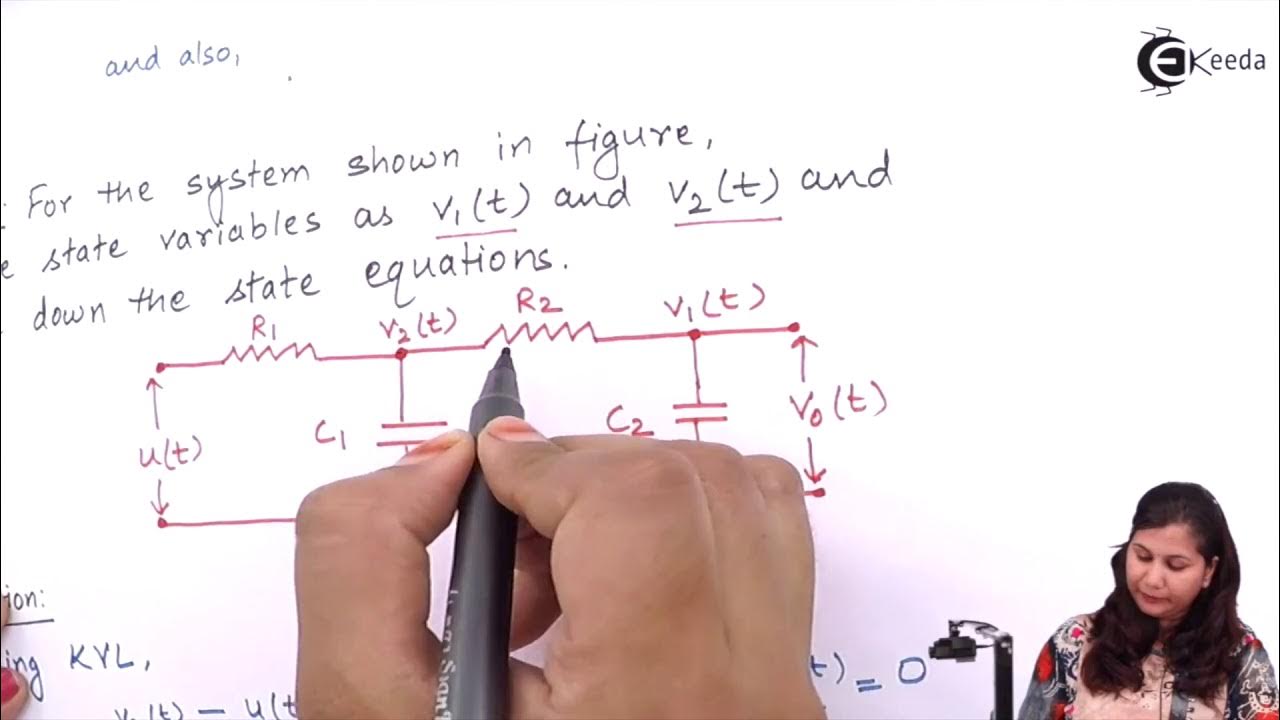 and also,
EKeeda
: For the system shown in figure,
e state variables as v₁(t) and v₂(t) and
down the state equations.
R₁ v₂(t) R₂ v₁(t)
C₁ C₂ v₀(t)
u(t)
ion:
ing KVL,
t) = 0
v₂(t) - u(t